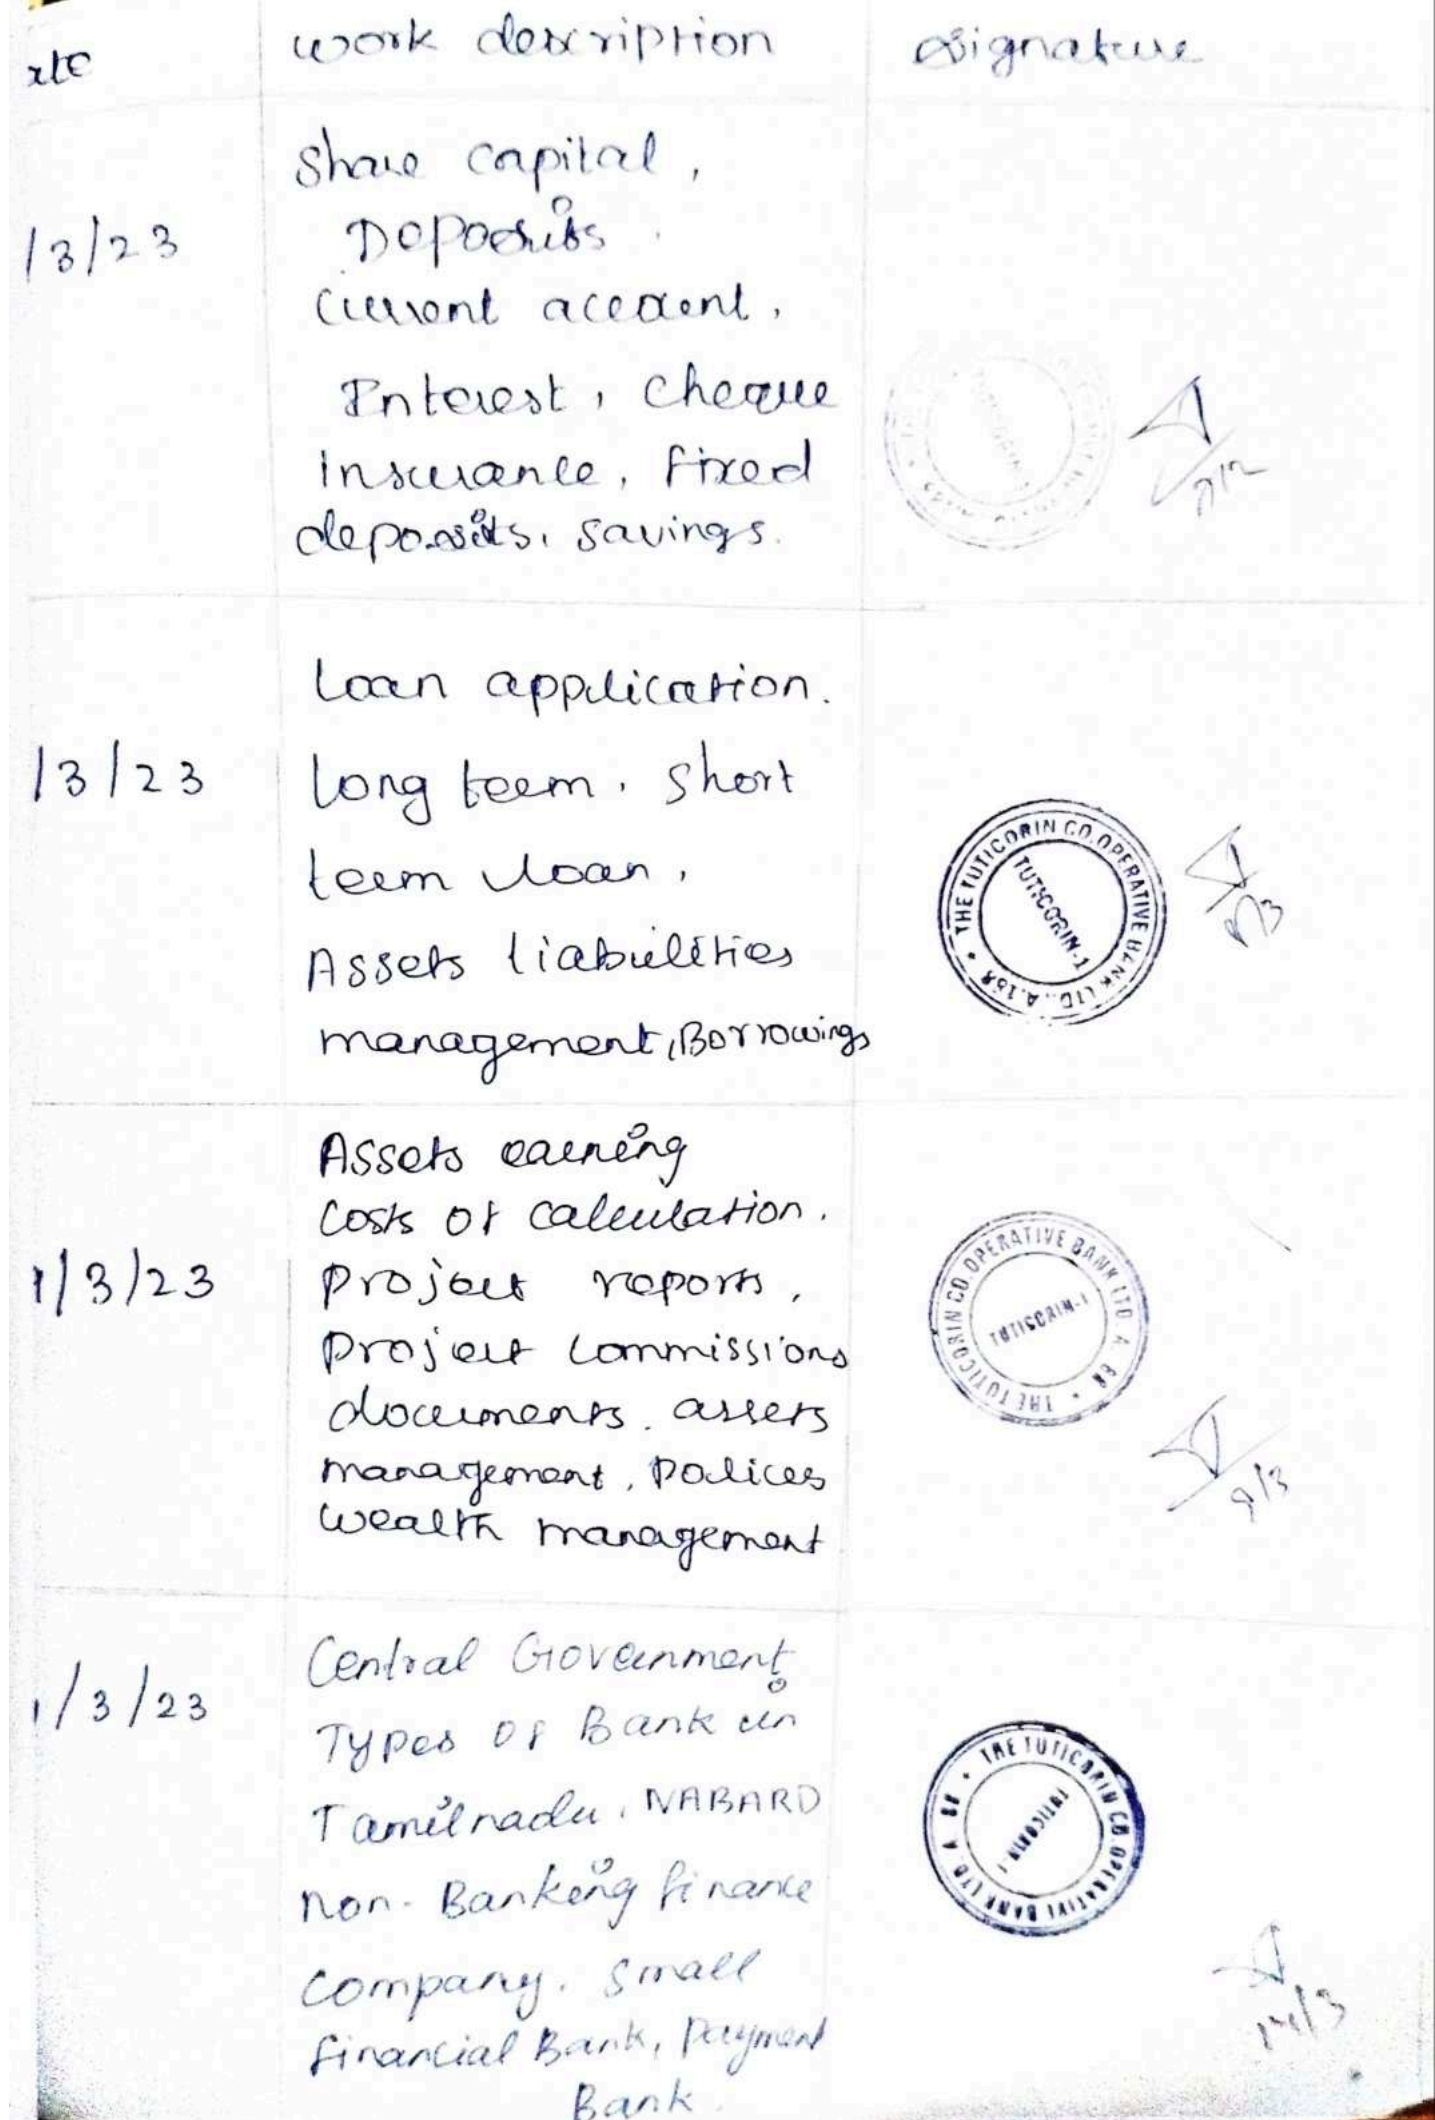 work description
signature
/3/23
Share capital,
Deposits
Current account,
Interest, cheque
insurance, fixed
deposits, savings.
/3/23
Loan application.
long term, short
term loan,
Assets liabilities
management, Borrowings
THE TUTICORIN CO.OPERATIVE BANK LTD., A.168
TUTICORIN-1
1/3/23
Assets earning
costs of calculation.
Project reports,
Project commissions
documents. assets
management, polices
wealth management
THE TUTICORIN CO.OPERATIVE BANK LTD. A
TUTICORIN-1
9/3
1/3/23
Central Government
Types of Bank in
Tamilnadu, NABARD
non-Banking finance
company. small
financial Bank, payment
Bank.
THE TUTICORIN CO.OPERATIVE BANK LTD. A
TUTICORIN-1